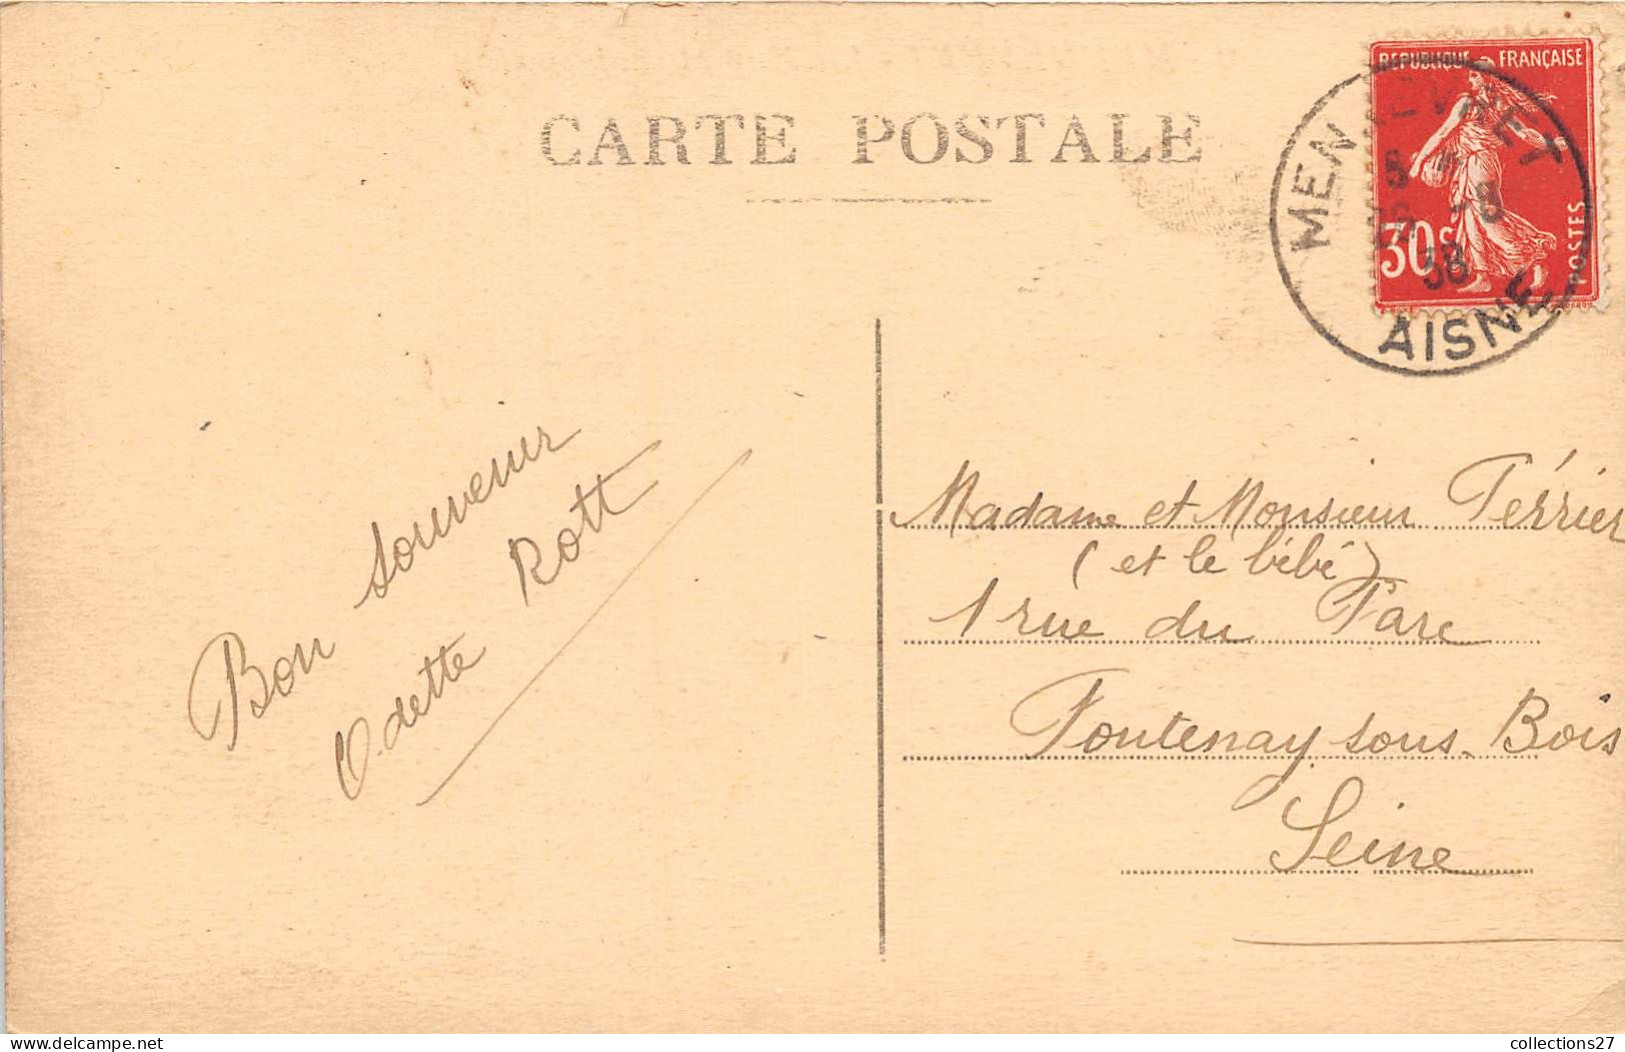 CARTE POSTALE
REPUBLIQUE FRANÇAISE
30c
POSTES
MENNEVRET
5
26 -8
38
AISNE
Bon souvenir
Odette Rott
Madame et Monsieur Térrier
(et le bébé)
1 rue du Parc
Fontenay sous-Bois
Seine
collections27